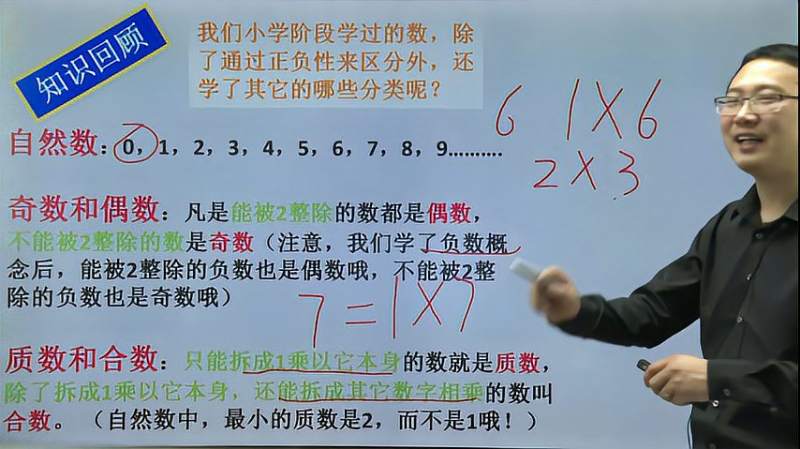 知识回顾
我们小学阶段学过的数，除
了通过正负性来区分外，还
学了其它的哪些分类呢？
6 1×6
2×3
自然数：0，1，2，3，4，5，6，7，8，9……….
奇数和偶数：凡是能被2整除的数都是偶数，
不能被2整除的数是奇数（注意，我们学了负数概
念后，能被2整除的负数也是偶数哦，不能被2整
除的负数也是奇数哦）
7=1×7
质数和合数：只能拆成1乘以它本身的数就是质数，
除了拆成1乘以它本身，还能拆成其它数字相乘的数叫
合数。（自然数中，最小的质数是2，而不是1哦！）